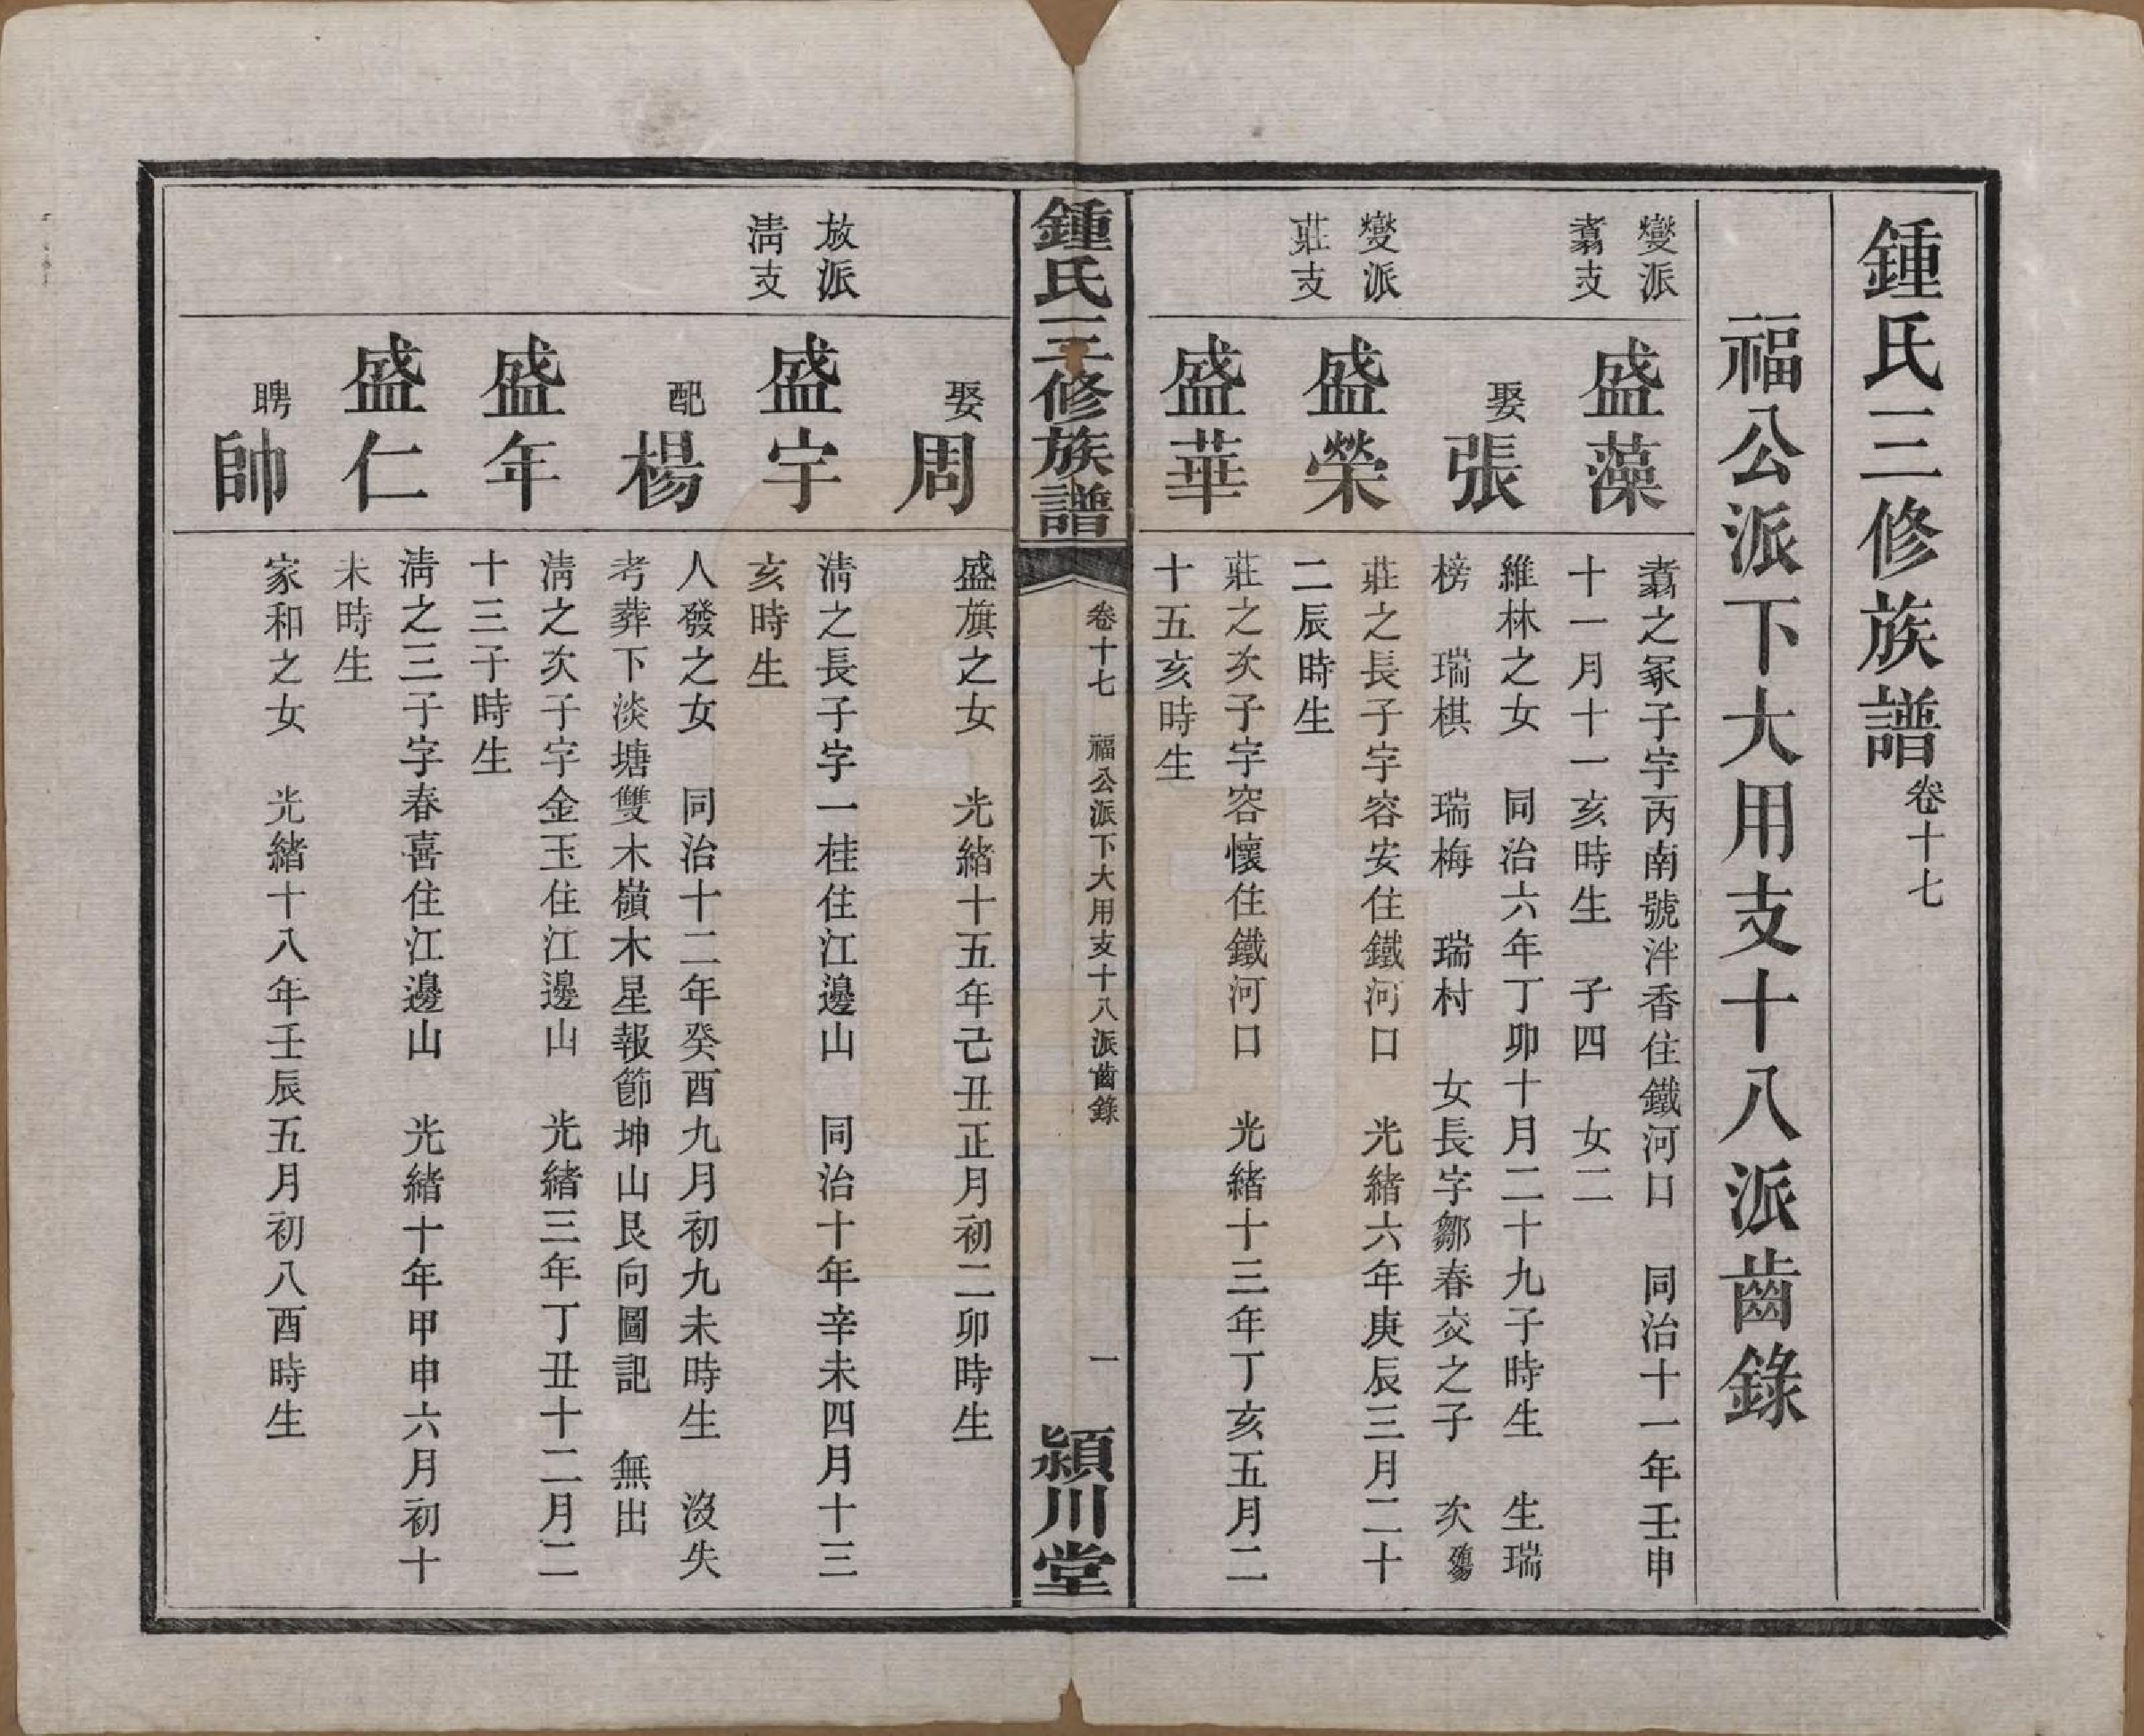 鍾氏三修族譜卷十七
福公派下大用支十八派齒錄
燮派
翥支
盛藻
翥之冢子字丙南號泮香住鐵河口 同治十一年壬申
十一月十一亥時生 子四 女二
娶張
維林之女 同治六年丁卯十月二十九子時生 生瑞
榜 瑞棋 瑞梅 瑞村 女長字鄒春交之子 次殤
燮派
莊支
盛榮
莊之長子字容安住鐵河口 光緒六年庚辰三月二十
二辰時生
盛華
莊之次子字容懷住鐵河口 光緒十三年丁亥五月二
十五亥時生
鍾氏三修族譜
卷十七 福公派下大用支十八派齒錄
一
潁川堂
娶周
盛旗之女 光緒十五年己丑正月初二卯時生
放派
淸支
盛宇
淸之長子字一桂住江邊山 同治十年辛未四月十三
亥時生
配楊
人發之女 同治十二年癸酉九月初九未時生 沒失
考葬下淡塘雙木嶺木星報節坤山艮向圖記 無出
盛年
淸之次子字金玉住江邊山 光緒三年丁丑十二月二
十三子時生
盛仁
淸之三子字春喜住江邊山 光緒十年甲申六月初十
未時生
聘帥
家和之女 光緒十八年壬辰五月初八酉時生